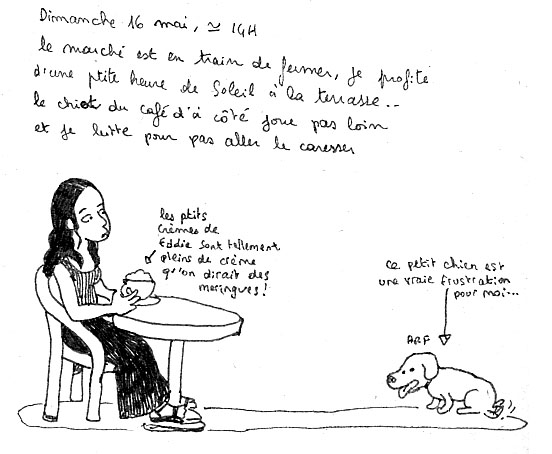 Dimanche 16 mai, ≃ 14H
le marché est en train de fermer, je profite
d'une ptite heure de Soleil à la terrasse...
le chiot du café d'à côté joue pas loin
et je lutte pour pas aller le caresser
les ptits
crèmes de
Eddie sont tellement
pleins de crème
qu'on dirait des
meringues!
ce petit chien est
une vraie frustration
pour moi...
ARF